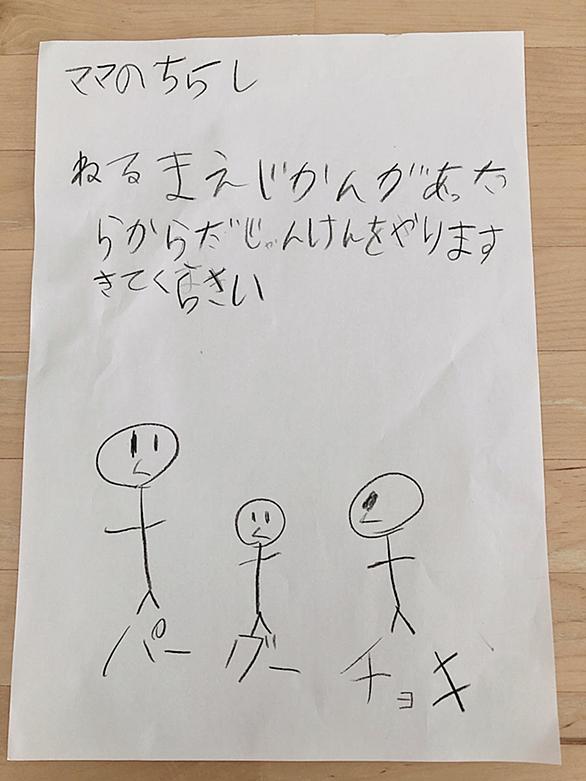 ママのちらし
ねるまえじかんがあった
らからだじゃんけんをやります
きてください
パー グー チョキ